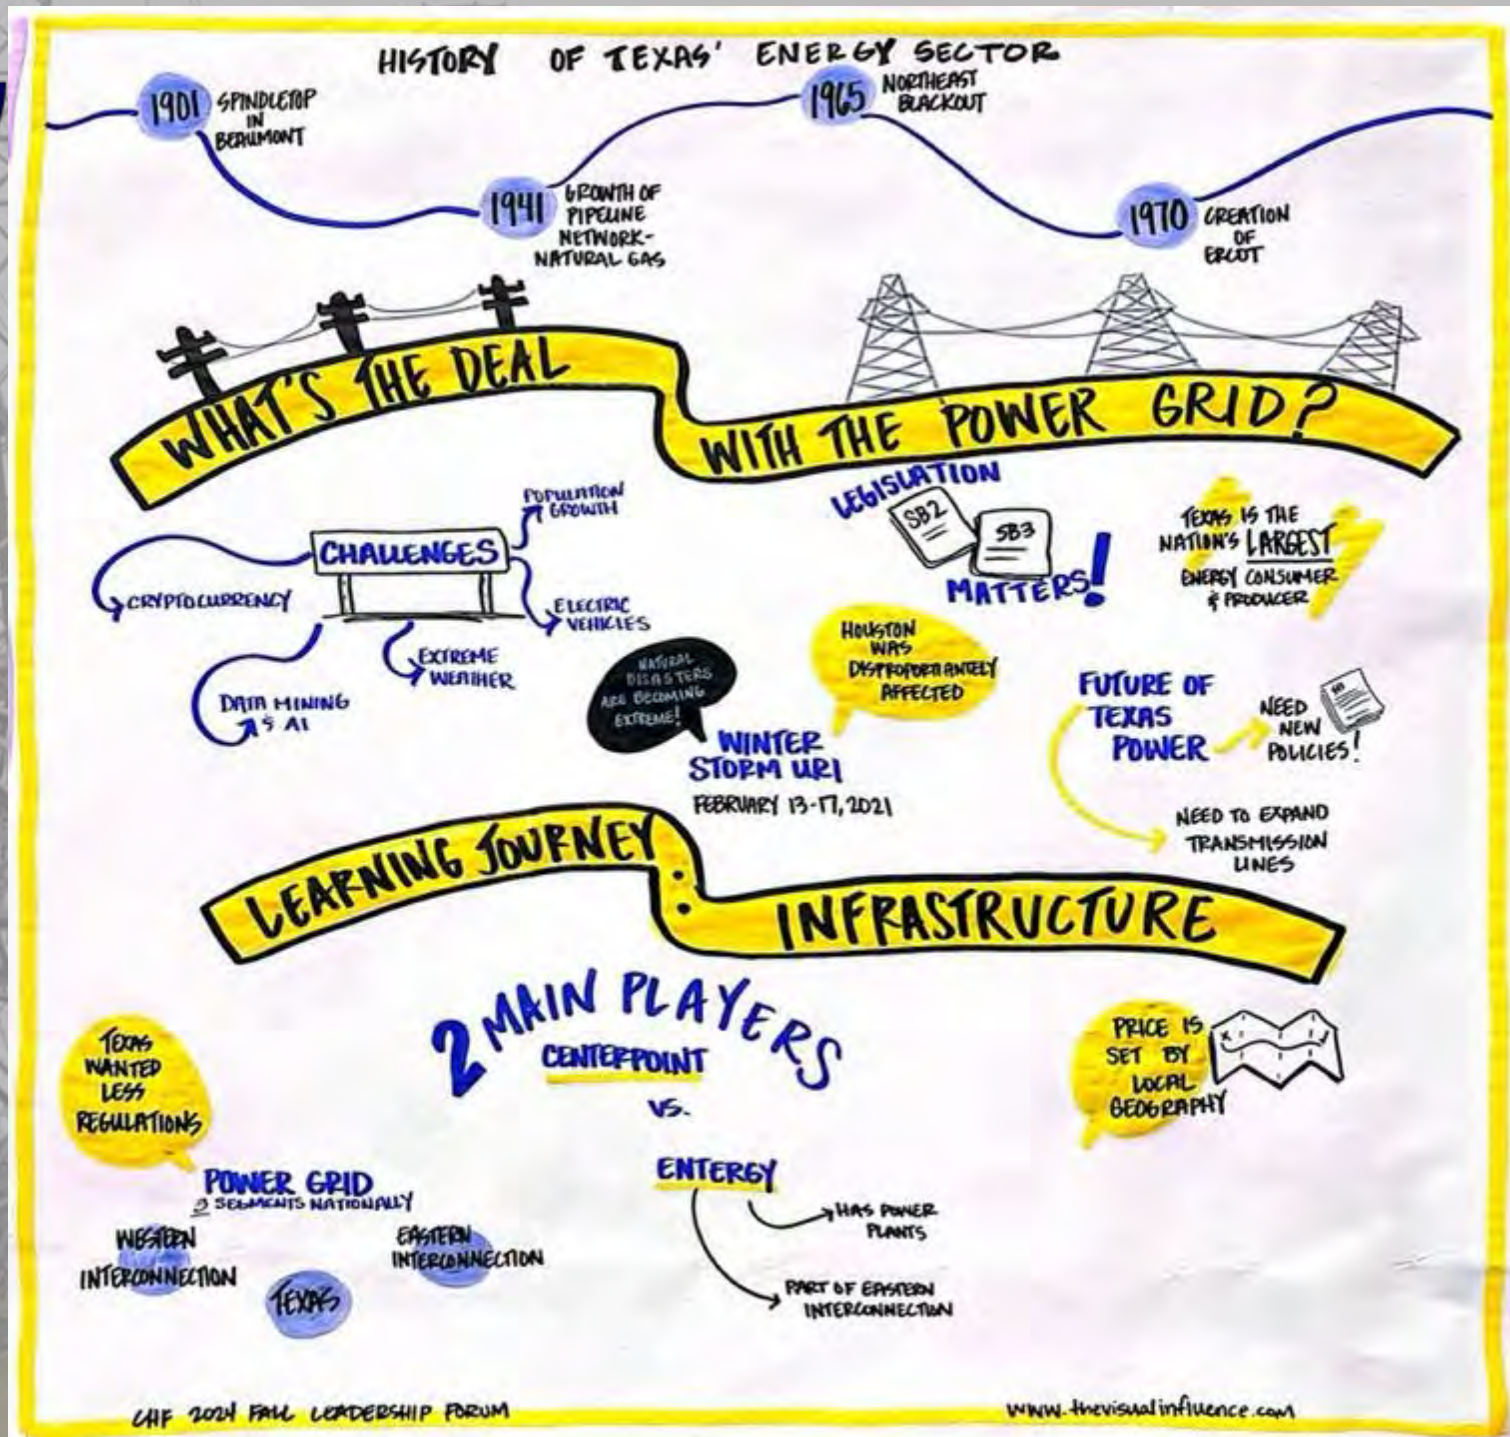 HISTORY OF TEXAS' ENERGY SECTOR
1901
SPINDLETOP
IN
BEAUMONT
1941
GROWTH OF
PIPELINE
NETWORK-
NATURAL GAS
1965
NORTHEAST
BLACKOUT
1970
CREATION
OF
ERCOT
WHAT'S THE DEAL
WITH THE POWER GRID?
CHALLENGES
POPULATION
GROWTH
CRYPTOCURRENCY
ELECTRIC
VEHICLES
EXTREME
WEATHER
DATA MINING
& AI
LEGISLATION
SB2
SB3
MATTERS!
TEXAS IS THE
NATION'S LARGEST
ENERGY CONSUMER
& PRODUCER
NATURAL
DISASTERS
ARE BECOMING
EXTREME!
HOUSTON
WAS
DISPROPORTIANTELY
AFFECTED
WINTER
STORM URI
FEBRUARY 13-17, 2021
FUTURE OF
TEXAS
POWER
NEED
NEW
POLICIES!
NEED TO EXPAND
TRANSMISSION
LINES
LEARNING JOURNEY:
INFRASTRUCTURE
2 MAIN PLAYERS
CENTERPOINT
VS.
ENTERGY
HAS POWER
PLANTS
PART OF EASTERN
INTERCONNECTION
TEXAS
WANTED
LESS
REGULATIONS
POWER GRID
3 SEGMENTS NATIONALLY
WESTERN
INTERCONNECTION
EASTERN
INTERCONNECTION
TEXAS
PRICE IS
SET BY
LOCAL
GEOGRAPHY
CHF 2024 FALL LEADERSHIP FORUM
www.thevisualinfluence.com